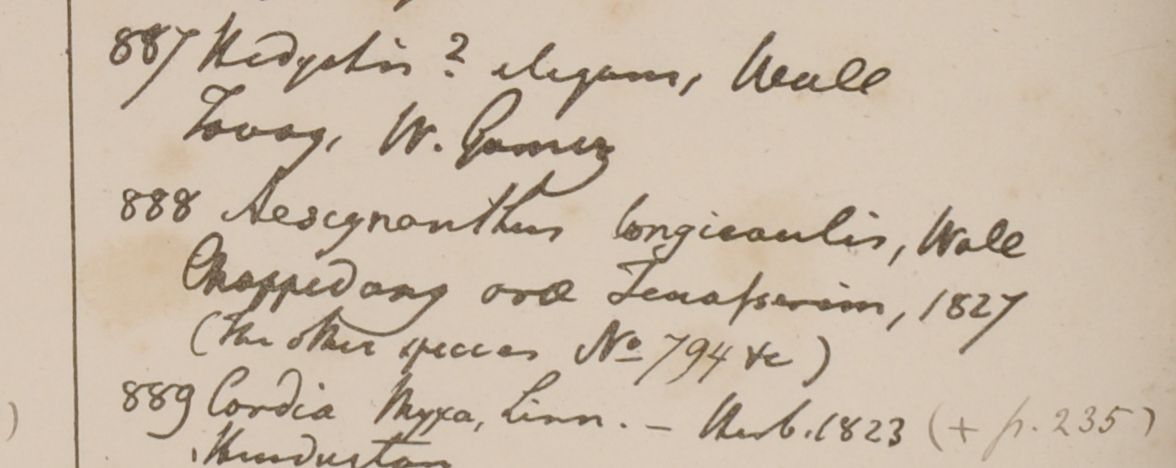 887 Hedyotis? elegans, Wall
Tavoy, W. Gomez
888 Aeschynanthus longicaulis, Wall
Chappedong oræ Tenasserim, 1827
(The other species No 794 &c)
889 Cordia Myxa, Linn. – Herb. 1823 (+ p. 235)
Hindustan